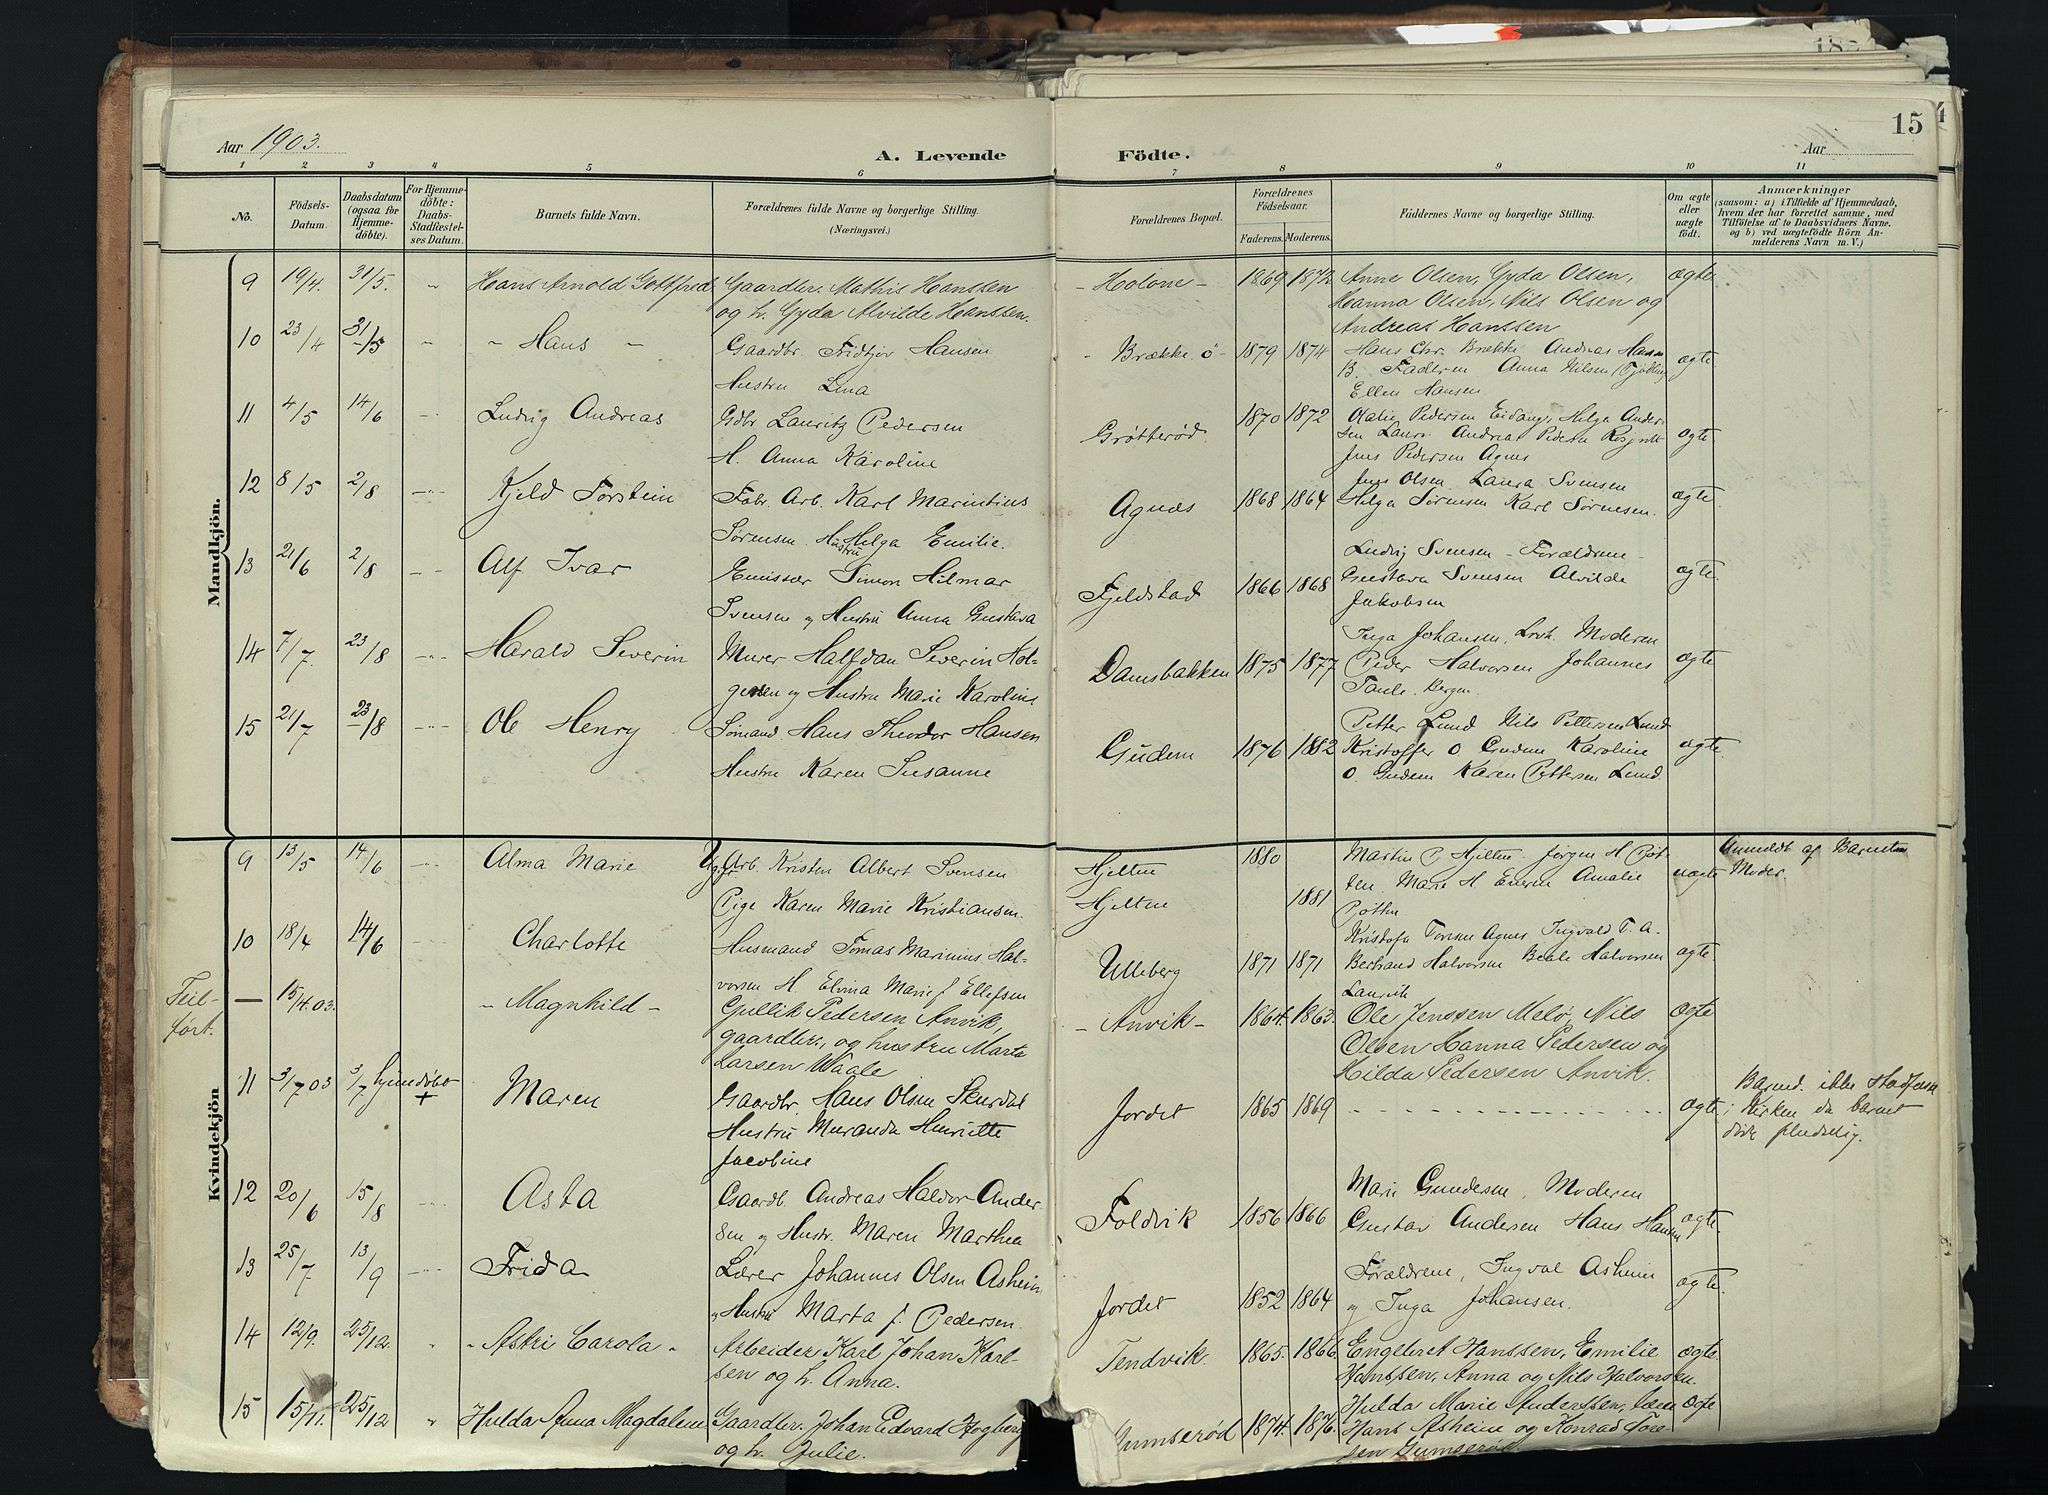 15
Aar 1903.
A. Levende Födte.
Aar
1 2 3 4 5 6 7 8 9 10 11
No.
Födsels-Datum.
Daabsdatum (ogsaa for Hjemme-döbte).
For Hjemme-döbte: Daabs-Stadfæstel-ses Datum.
Barnets fulde Navn.
Forældrenes fulde Navne og borgerlige Stilling. (Næringsvei.)
Forældrenes Bopæl.
Forældrenes Födselsaar.
Faderens. Moderens.
Faddernes Navne og borgerlige Stilling.
Om ægte eller uægte födt.
Anmærkninger
(saasom: a) i Tilfælde af Hjemmedaab,
hvem der har forrettet samme, med
Tilföielse af to Daabsvidners Navne.
og b) ved uægtefödte Börn An-
melderens Navn m. V.)
Mandkjön.
9 19/4. 31/5. " Hans Arnold Gottfred Gaardbr. Mathis Hanssen - Holone - 1869 1872 Anne Olsen, Gyda Olsen, ægte
og h. Gyda Alvilde Hanssen. Hanna Olsen, Nils Olsen og
Andreas Hanssen
10 23/4 31/5 " - Hans - Gaardbr. Fridtjov Hansen - Brække ö - 1879 1874 Hans Chr. Brække Andreas Hansen ægte
Hustru Lina B. Faderen Anna Nilsen
Ellen Hansen
11 4/5 14/6 Ludvig Andreas Gdbr Lauritz Pedersen Grötteröd 1870 1872 Pedersen Eidang, Helga Ander- ægte
H. Anna Karoline sen Andrea Pedersen
Jens Pedersen Agnes
12 8/5 2/8 Kjeld Torstein Fabr. Arb. Karl Marintius Agnæs 1868 1864 Jens Olsen Laura Svensen ægte
Sörensen. Hustru Helga Emilie. Helga Sörensen Karl Sörensen.
13 21/6 2/8 Alf Ivar Emissær Simon Hilmar Fjeldstad 1866 1868 Ludvig Svensen - Forældrene - ægte
Svensen og Hustru Anna Gustava Gustava Svensen Alvilde
Jakobsen
14 7/7. 23/8 Harald Severin Murer Halfdan Severin Hol- Damsbakken 1875 1877 Inga Johansen, Lrvk. Moderen ægte
gersen og Hustru Marie Karoline Peder Halvorsen Johannes
Bergen
15 21/7 23/8 Ole Henry Sömand Hans Theodor Hansen Gudem 1876 1882 Petter Lund Nils Pettersen Lund ægte
Hustru Karen Susanne Kristoffer O Gudem Karoline
O. Gudem Karen Pettersen Lund
Kvindekjön
9 13/5 14/6 Alma Marie Arb. Kristen Albert Svensen Hjelten 1880 Martin P Hjelten. Jörgen H Pöt- uægte Anmeldt af Barnets
Pige Karen Marie Kristiansen. Hjelten 1881 ten. Marie H Amalie Moder.
Pötten
10 18/4 14/6 Charlotte Husmand Tomas Marinius Hal- Ulleberg 1871 1871 Agnes Ingvald T. A. ægte
vorsen H. Elvina Marie f Ellefsen Bertrand Halvorsen Beate Halvorsen
Laurvik
Feil-
ført.
— 15/4.03. - Magnhild - Gullik Pedersen Anvik, - Anvik - 1864. 1863. Ole Jenssen Melö, Nils ægte
gaardbr., og hustru Marta Olsen Hanna Pedersen og
Larsen Waale Hilda Pedersen Anvik.
11 3/7 03 3/7 hjemedöbt + Maren Gaardbr. Hans Olsen Skurdal Jordet 1865 1869 ægte Barned. ikke Stadfæst
Hustru Henriette i Kirken da barnet
Jacobine döde pludselig.
12 20/6 15/8 Asta Gaardb. Andreas Haldor Ander Foldvik 1856 1866 Marie Gundersen, Moderen ægte
sen og Hustr. Maren Marthea Gustav Andersen Hans Hansen
13 25/7 13/9 Frida Lærer Johannes Olsen Asheim Jordet 1852 1864 Forældrene, Ingval Asheim ægte
og Hustru Marta f. Pedersen. og Inga Johansen.
14 12/9. 25/12. " - Astri Carola - Arbeider Karl Johan Karl- Tendvik. 1865. 1866. Engebret Hanssen, Emilie ægte
sen og h. Anna. Hanssen, Anna og Nils Halvorsen.
15 15/11. 25/12 " Hulda Anna Magdalene Gaardbr. Johan Edvard Hogberg Gumseröd 1874. 1876. Hulda Marie Anderssen, ægte
og h. Julie. Hans Asheim og Konrad Tore-
sen Gumseröd